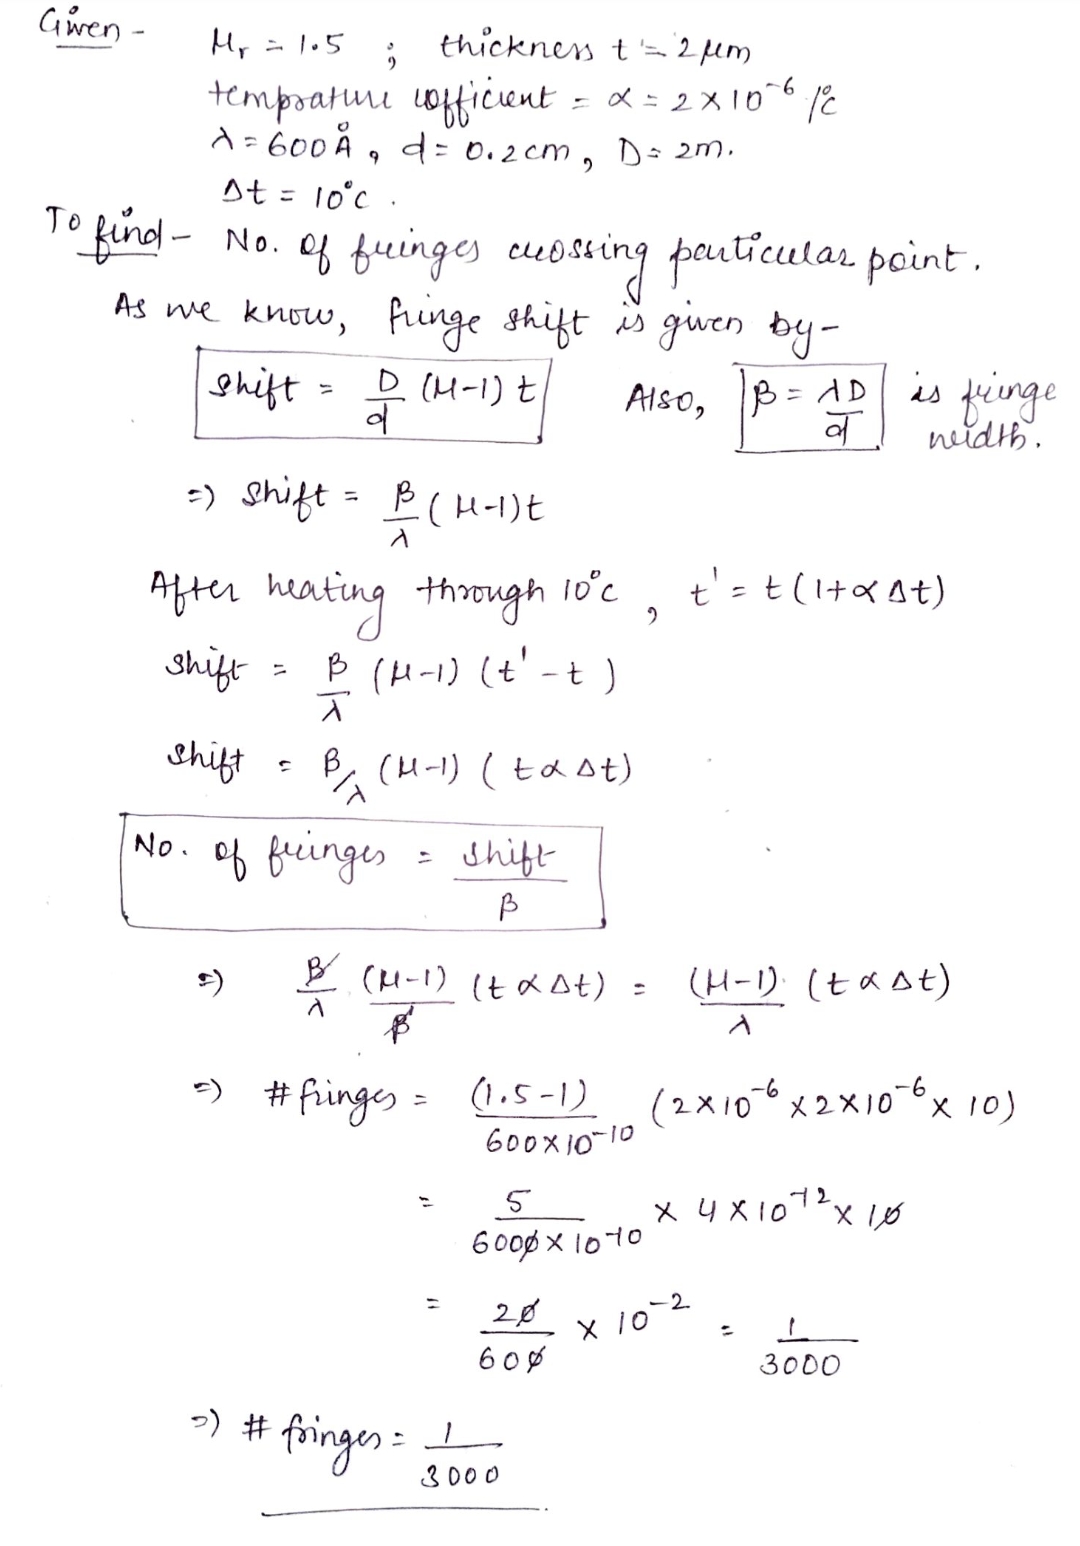 Given - μr = 1.5 ; thickness t = 2 μm
temprature cofficient = α = 2×10^-6 /°C
λ = 600 Å, d = 0.2cm, D = 2m.
Δt = 10°C.
To find - No. of fringes crossing particular point.
As we know, fringe shift is given by -
Shift = D/d (μ-1) t Also, β = λD/d is fringe width.
=) Shift = β/λ (μ-1)t
After heating through 10°C, t' = t(1+αΔt)
Shift = β/λ (μ-1) (t'-t)
Shift = β/λ (μ-1) (tαΔt)
No. of fringes = Shift/β
=) β/λ (μ-1)/β (tαΔt) = (μ-1)/λ (tαΔt)
=) # fringes = (1.5-1)/600×10^-10 (2×10^-6 × 2×10^-6 × 10)
= 5/6000×10^-10 × 4×10^-12 × 10
= 20/600 × 10^-2 = 1/3000
=) # fringes = 1/3000